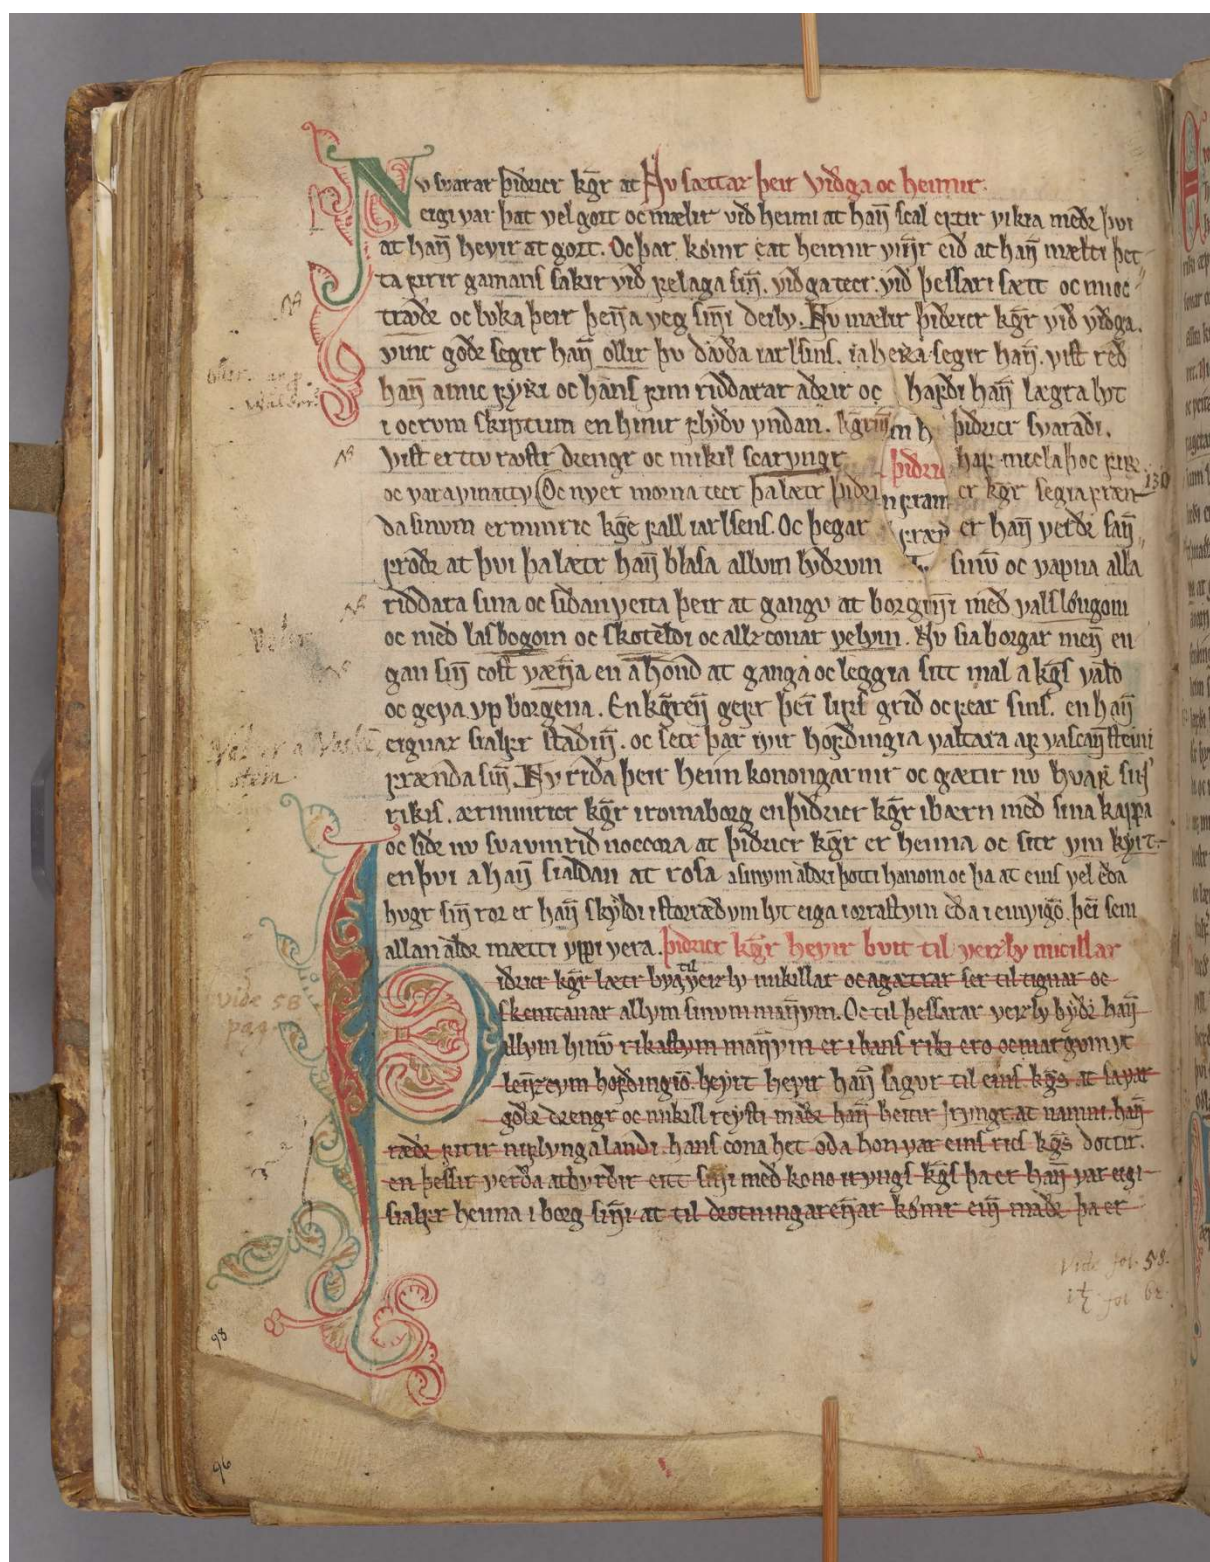 Nv svarar þidricr kgr at Nv sættaz þeir viðga oc heimir.
eigi var þat vel gort oc mælir við heimi at hann scal eptir vikia með þvi
at hann hevir at gort. Oc þar kömr at heimir vinnr eið at hann mælti þet
ta firir gamans sakir við felaga sinn. viðga tecr við þessari sætt oc
oc lvka þeir þenna veg sinni deilv. Nv mælir þidricr kgr við viðga.
vinir goðr segir hann ollir þv davða iarlsins. ia herra segir hann. vist réð
hann ainic fyri oc hans fim riddarar aðrir oc hafði hann lægra lvt
i ocrvm skiptum en hinir flyðv vndan. þidricr svaraði.
vist ertv ravstr drengr oc mikil
oc var Oc nv er morna tecr þa lætr þidricr kgr segia fræn
da sinvm erminric kge fall iarlsens. Oc þegar er hann verðr sann
froðr at þvi þa lætr hann blasa allvm lvðrvm sinvm oc vapna alla
riddara sina oc siðan veita þeir at gangv at borginni með valslöngom
oc með lasbogom oc skoteldi oc allzconar velvm. Nv sia borgar menn en
gan sinn cost vænna en a hond at ganga oc leggia sitt mal a kgs vald
oc geva vp borgena. En kgrenn gefr þeim lifs grið oc fear sins. en hann
eignaz sialfr staðinn. oc setr þar ivir hofðingia valtara af vascansteini
frænda sinn. Nv riða þeir heim konongarnir oc gætir nv hvar sins
rikis. ærminricr kgr i romaborg en þidricr kgr i bærn með sina kappa
oc liðr nv sva vm rið noccora at þidricr kgr er heima oc sitr vm kyrt.
en þvi a hann sialdan at rosa a sinvm aldri þotti honom oc þa at eins vel eða
hvgr sinn ror er hann skyldi i storræðvm lvt eiga i orrastvm eða i einvigom þeim sem
allan aldr mætti vppi vera. þidricr kgr hevir buit til veizlv micillar
þidricr kgr lætr bva til veizlv mikillar oc agætrar ser til tignar oc
skemtanar allvm sinvm mannvm. Oc til þessarar veizlv byðr hann
allvm hinvm rikastvm mannvm er i hans riki ero oc margvm vt
lenzcvm hofðingiom. heyrt hevir hann sagvr til eins kgs at sa var
goðr drengr oc mikill reysti maðr hann heitir Irvngr at namni. hann
ræðr firir niflvngalandi. hans cona het oda hon var eins rics kgs dottir.
en þessir verða atbvrðir eitt sinn með kono irvngs kgs þa er hann var eigi
sialfr heima i bœg sinni. at til drotningarennar kömr einn maðr þa er
130
Vide 58
pag
Vide fol. 58.
fol 62
98
96